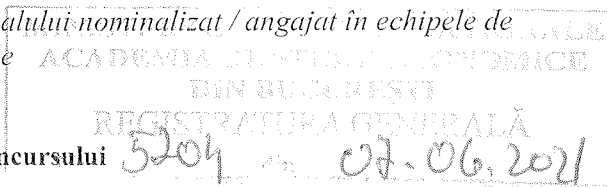 alului nominalizat / angajat în echipele de
e ACADEMIA
DIN BUCUREȘTI
REGISTRATURA GENERALĂ
ncursului 5204 din 07.06.2021